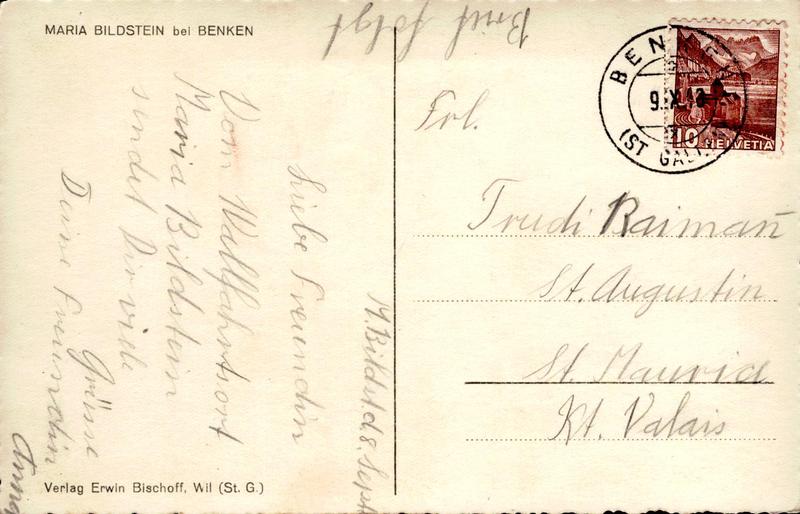 MARIA BILDSTEIN bei BENKEN
Brief folgt
M. Bildst. d. 8. Sept.
Liebe Freundin
Vom Wallfahrtsort
Maria Bildstein
sendet Dir viele
Grüsse
Deine Freundin
Anny
Frl.
Trudi Raimañ
St. Augustin
St. Maurice
Kt. Valais
BENKEN
(ST GALLEN)
10 HELVETIA
Verlag Erwin Bischoff, Wil (St. G.)